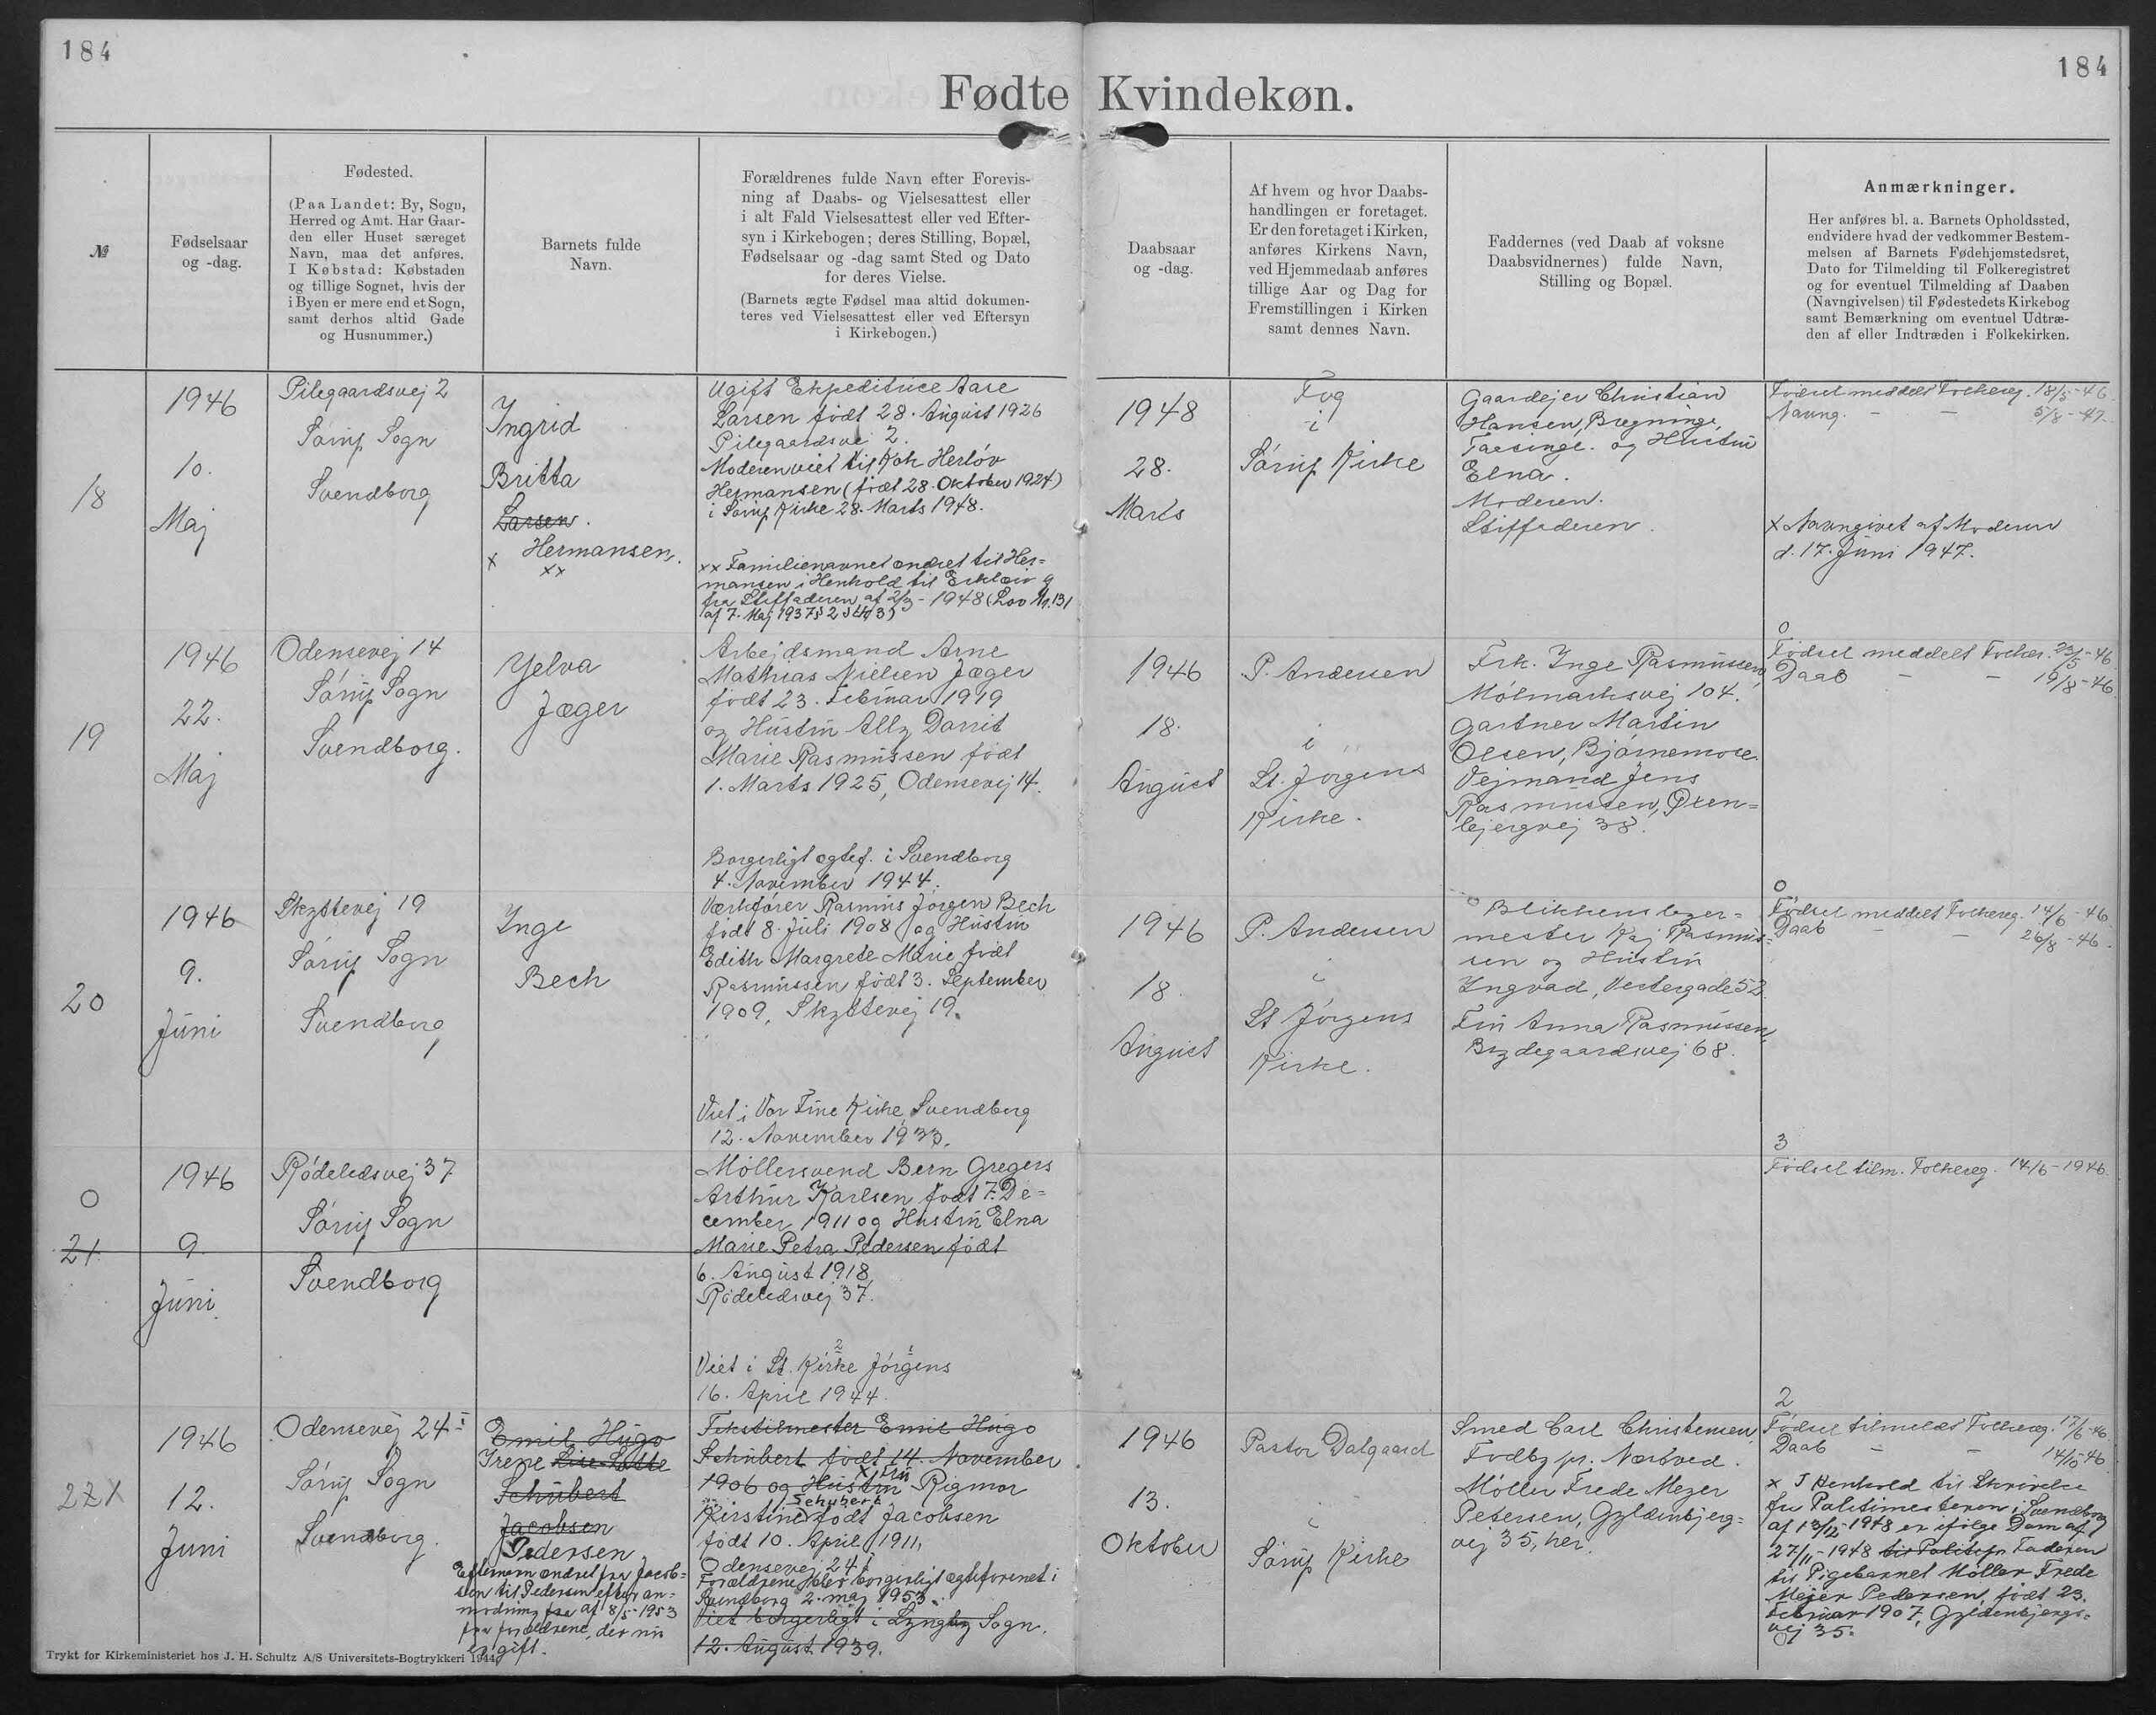 184
184
Fødte Kvindekøn.
№
Fødselsaar
og -dag.
Fødested.
(Paa Landet: By, Sogn,
Herred og Amt. Har Gaar-
den eller Huset særeget
Navn, maa det anføres.
I Købstad: Købstaden
og tillige Sognet, hvis der
i Byen er mere end et Sogn,
samt derhos altid Gade
og Husnummer.)
Barnets fulde
Navn.
Forældrenes fulde Navn efter Forevis-
ning af Daabs- og Vielsesattest eller
i alt Fald Vielsesattest eller ved Efter-
syn i Kirkebogen; deres Stilling, Bopæl,
Fødselsaar og -dag samt Sted og Dato
for deres Vielse.
(Barnets ægte Fødsel maa altid dokumen-
teres ved Vielsesattest eller ved Eftersyn
i Kirkebogen.)
Daabsaar
og -dag.
Af hvem og hvor Daabs-
handlingen er foretaget.
Er den foretaget i Kirken,
anføres Kirkens Navn,
ved Hjemmedaab anføres
tillige Aar og Dag for
Fremstillingen i Kirken
samt dennes Navn.
Faddernes (ved Daab af voksne
Daabsvidnernes) fulde Navn,
Stilling og Bopæl.
Anmærkninger.
Her anføres bl. a. Barnets Opholdssted,
endvidere hvad der vedkommer Bestem-
melsen af Barnets Fødehjemstedsret,
Dato for Tilmelding til Folkeregistret
og for eventuel Tilmelding af Daaben
(Navngivelsen) til Fødestedets Kirkebog
samt Bemærkning om eventuel Udtræ-
den af eller Indtræden i Folkekirken.
18
1946
10.
Maj
Pilegaardsvej 2
Sørup Sogn
Svendborg
Ingrid
Britta
Larsen.
x Hermansen.
xx
Ugift Ekspeditrice Aase
Larsen født 28. August 1926
Pilegaardsvej 2.
Moderen viet til Herløv
Hermansen (født 28. Oktober 1924)
i Sørup Kirke 28. Marts 1948.
xx Familienavnet ændret til Her-
mansen i Henhold til Erklæring
fra Stiffaderen af 2/3 - 1948 (Lov Nr. 131
af 7. Maj 1937 § 2 Stk 3)
1948
28.
Marts
Fog
i
Sørup Kirke
Gaardejer Christian
Hansen, Bregninge,
Taasinge. og Hustru
Elna.
Moderen.
Stiffaderen.
Fødsel meddelt Folkereg. 18/5-46.
Navng. - - 5/8-47.
x Navngivet af Moderen
d. 17. Juni 1947.
19
1946
22.
Maj
Odensevej 14
Sørup Sogn
Svendborg.
Yelva
Jæger
Arbejdsmand Arne
Mathias Nielsen Jæger
født 23. Februar 1919
og Hustru Ally Dorrit
Marie Rasmussen født
1. Marts 1925, Odensevej 14.
Borgerligt ægtef. i Svendborg
4. November 1944.
1946
18.
August
P. Andersen
i
St. Jørgens
Kirke.
Frk. Inge Rasmussen,
Mølmarksvej 104.
Gartner Martin
Olsen, Bjørnemose
Vejmand Jens
Rasmussen, Øxen-
bjergvej 38.
0
Fødsel meddelt Folker. 23/5-46
Daab - - 19/8-46
20
1946
9.
Juni
Skyttevej 19
Sørup Sogn
Svendborg
Inge
Bech
Værkfører Rasmus Jørgen Bech
født 8. Juli 1908 og Hustru
Edith Margrete Marie født
Rasmussen født 3. September
1909, Skyttevej 19.
Viet i Vor Frue Kirke, Svendborg
12. November 1933.
1946
18.
August
P. Andersen
i
St Jørgens
Kirke.
Blikkenslager-
mester Kaj Rasmus-
sen og Hustru
Ingvad, Vestergade 52.
Fru Anna Rasmussen,
Brydegaardsvej 68.
0
Fødsel meddelt Folkereg. 14/6-46
Daab - - 26/8-46.
0
21
1946
9.
Juni.
Rødeledsvej 37
Sørup Sogn
Svendborg
Møllersvend Bern Gregers
Arthur Karlsen født 7. De-
cember 1911 og Hustru Elna
Marie Petra Pedersen født
6. August 1918,
Rødeledsvej 37.
2 1
Viet i St. Kirke Jørgens
16. April 1944.
3
Fødsel tilm. Folkereg. 14/6-1946.
22
1946
12.
Juni
Odensevej 24 I
Sørup Sogn
Svendborg.
Emil Hugo
Irene Lise-Lotte
Schubert
Jacobsen
Pedersen
Efternavn ændret fra Jacob-
sen til Pedersen efter an-
modning fra af 8/5-1953
fra forældrene, der nu
er gift.
Tekstilmester Emil Hugo
Schubert født 14. November
1906 og Hustru x Fru Rigmor
Kirstine Schubert født Jacobsen
født 10. April 1911,
Odensevej 24 I
Forældrene blev borgerligt ægteforenet i
Svendborg 2. maj 1953.
Viet borgerligt i Lyngby Sogn.
12. August 1939.
1946
13.
Oktober
Pastor Dalgaard
i
Sørup Kirke
Smed Carl Christensen,
Fodby pr. Næstved.
Møller Frede Mejer
Petersen, Gyldenbjerg-
vej 35, her.
2
Fødsel tilmeldt Folkereg. 17/6-46.
Daab - - 14/10-46
x I Henhold til Skrivelse
fra Politimesteren i Svendborg
af 13/12-1948 er ifølge Dom af
27/11-1948 Faderen
til Pigebarnet Møller Frede
Mejer Pedersen, født 23.
Februar 1907, Gyldenbjergs-
vej 35.
Trykt for Kirkeministeriet hos J. H. Schultz A/S Universitets-Bogtrykkeri 1944.